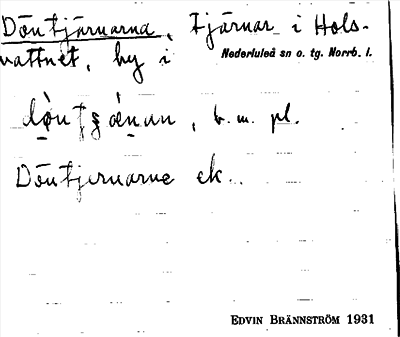 Döntjärnarna, tjärnar i Hols-
vattnet, by i
Nederluleå sn o. tg. Norrb. l.
b. m. pl.
Döntjernarne ek.
EDVIN BRÄNNSTRÖM 1931